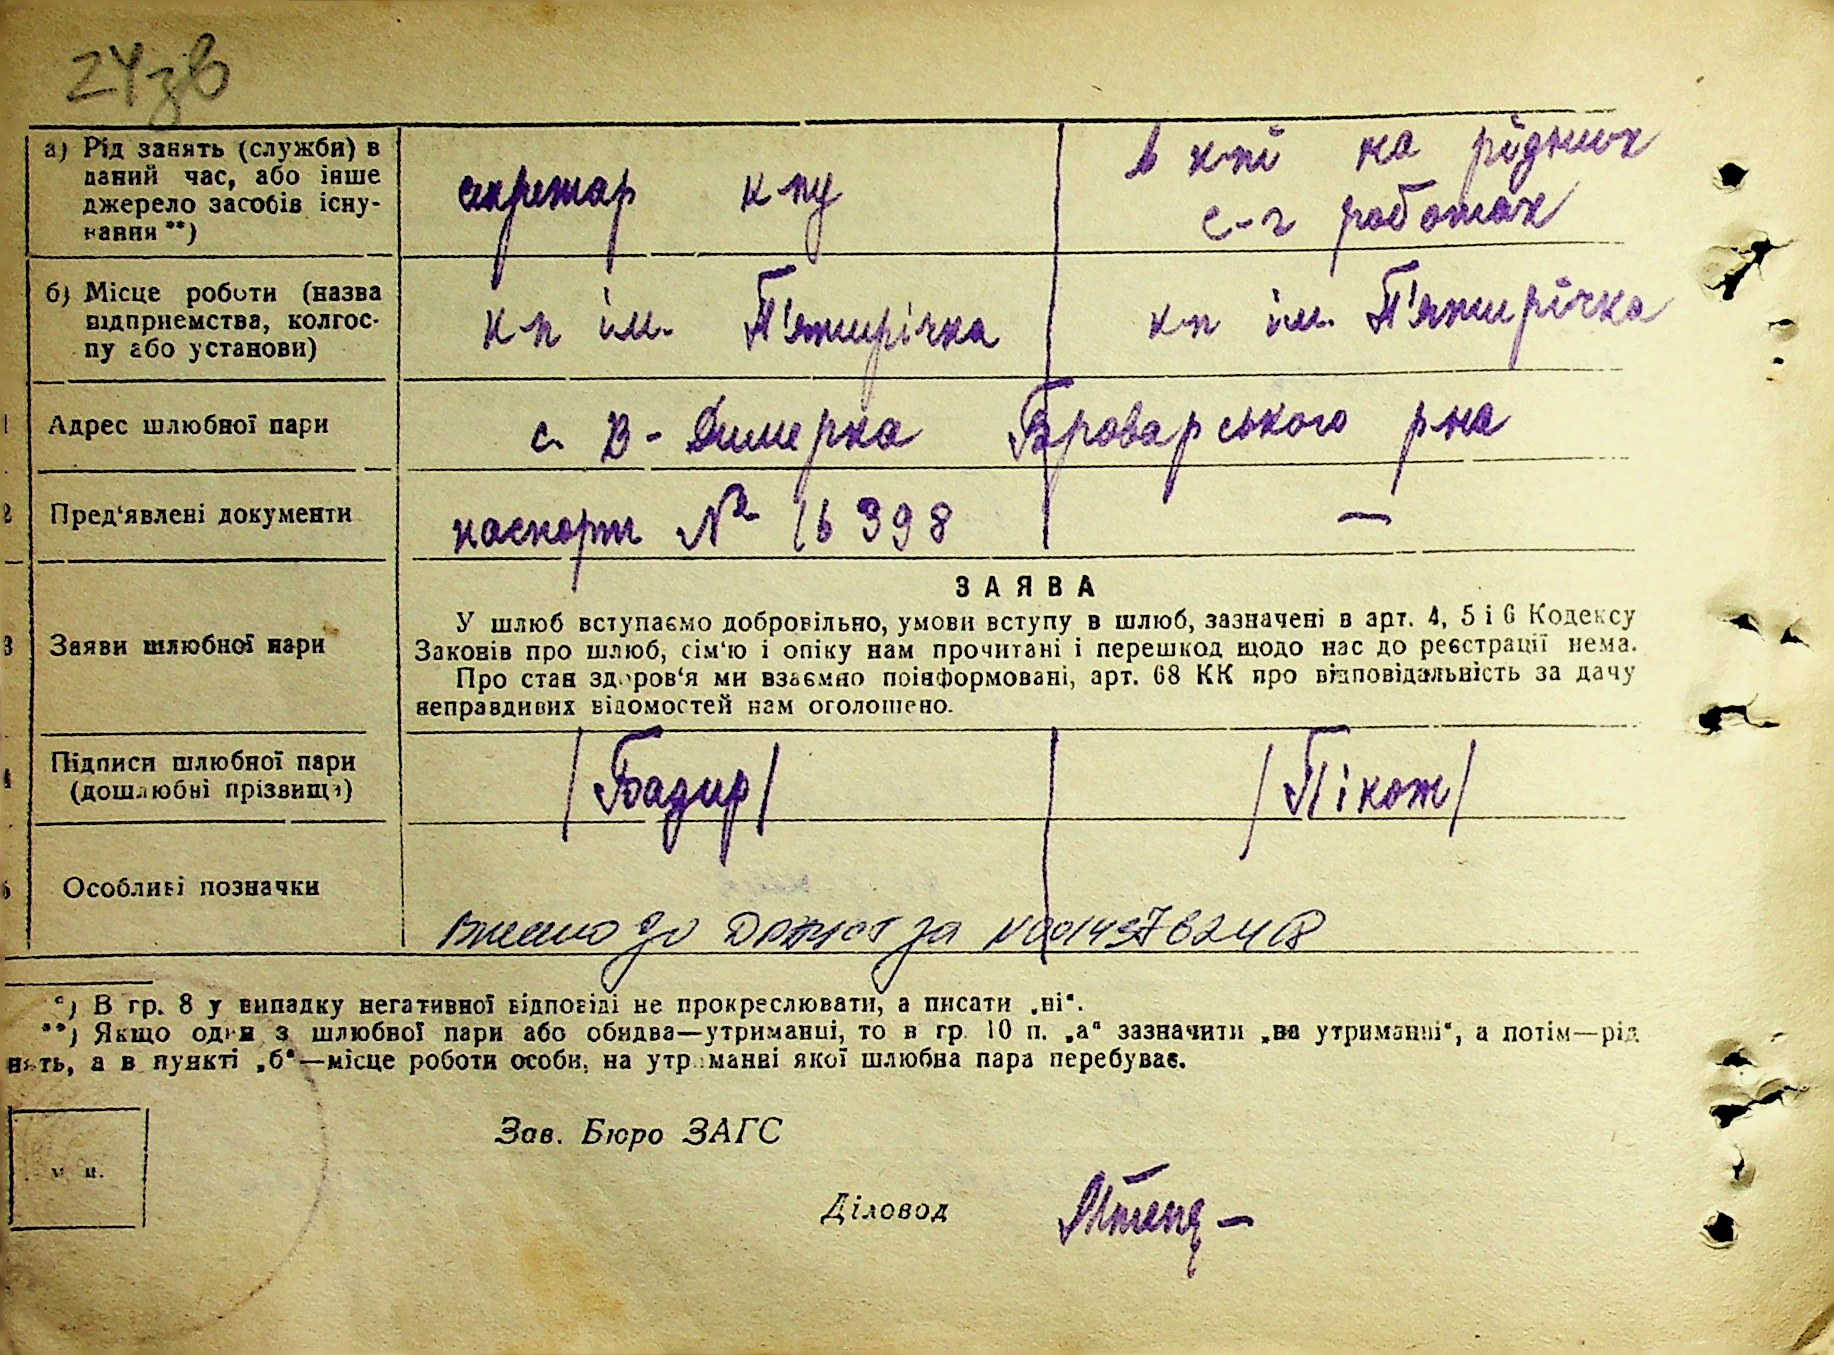 24зв
а) Рід занять (служби) в даний час, або інше джерело засобів існування **)
секретар к-пу
в к-пі на рідних с-г роботах
б) Місце роботи (назва підприємства, колгоспу або установи)
к-п ім. П'ятирічка
к-п ім. П'ятирічка
Адрес шлюбної пари
с. В-Димерка Броварського р-на
Пред'явлені документи
паспорт № 16398
—
Заяви шлюбної пари
ЗАЯВА
У шлюб вступаємо добровільно, умови вступу в шлюб, зазначені в арт. 4, 5 і 6 Кодексу
Законів про шлюб, сім'ю і опіку нам прочитані і перешкод щодо нас до реєстрації нема.
Про стан здоров'я ми взаємно поінформовані, арт. 68 КК про відповідальність за дачу
неправдивих відомостей нам оголошено.
Підписи шлюбної пари (дошлюбні прізвища)
/Бадир/
/Пікож/
Особливі позначки
Внесено до ДРАЦСГ за №00149762418
*) В гр. 8 у випадку негативної відповіді не прокреслювати, а писати „ні".
**) Якщо один з шлюбної пари або обидва—утриманці, то в гр. 10 п. „а" зазначити „на утриманні", а потім—рід
нять, а в пункті „б"—місце роботи особи, на утриманні якої шлюбна пара перебуває.
м. п.
Зав. Бюро ЗАГС
Діловод